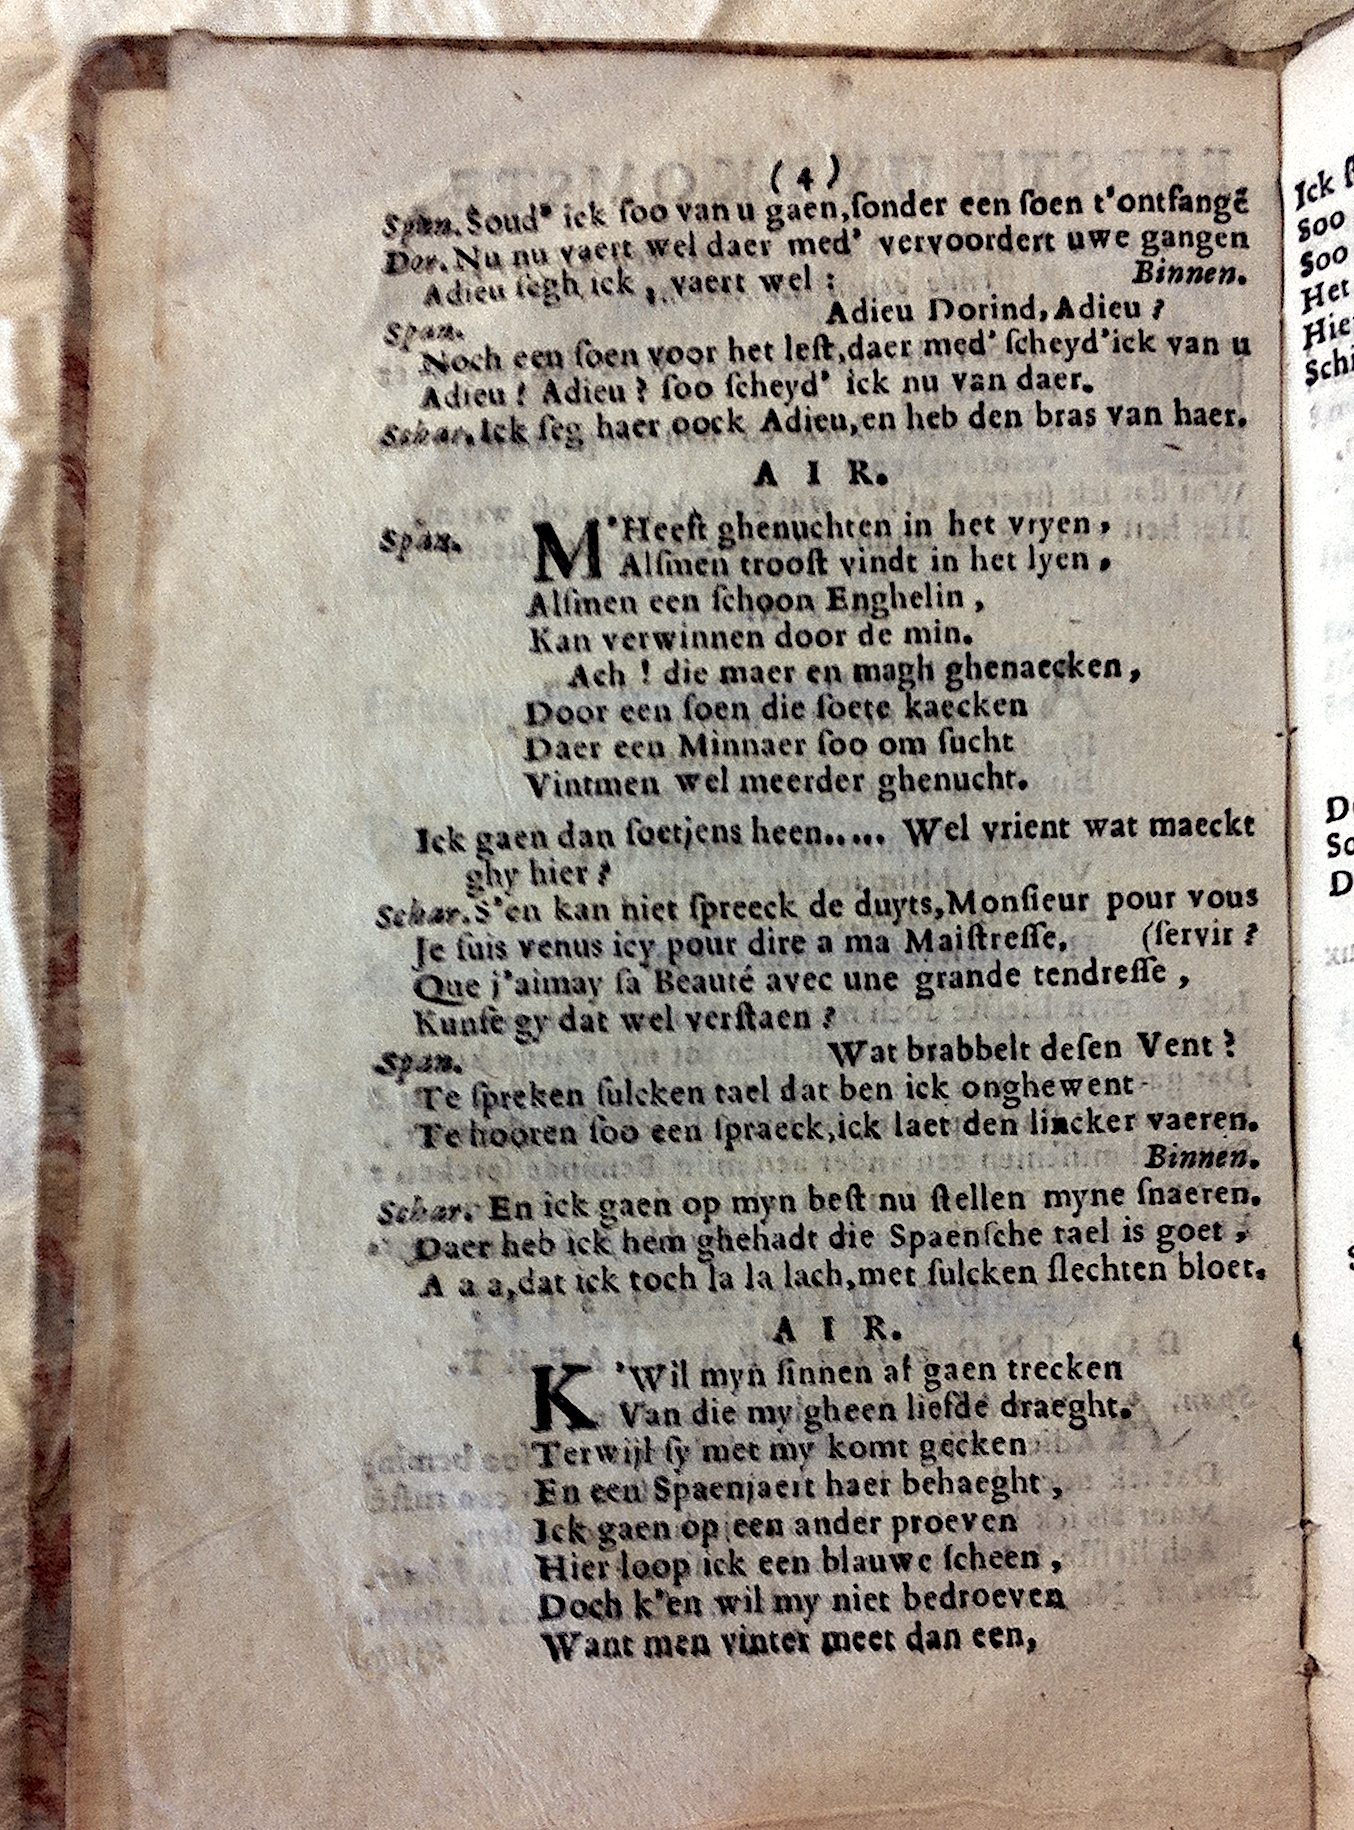 ( 4 )
Span. Soud' ick ſoo van u gaen,ſonder een ſoen t'ontfangē
Dor. Nu nu vaert wel daer med' vervoordert uwe gangen
Adieu ſegh ick, vaert wel : Binnen.
Span. Adieu Dorind, Adieu ?
Noch een ſoen voor het leſt,daer med' ſcheyd'ick van u
Adieu ! Adieu ? ſoo ſcheyd' ick nu van daer.
Schar. Ick ſeg haer oock Adieu,en heb den bras van haer.
A I R.
Span. M'Heeft ghenuchten in het vryen,
Alſmen trooſt vindt in het lyen,
Alſmen een ſchoon Enghelin,
Kan verwinnen door de min.
Ach ! die maer en magh ghenaecken,
Door een ſoen die ſoete kaecken
Daer een Minnaer ſoo om ſucht
Vintmen wel meerder ghenucht.
Ick gaen dan ſoetjens heen..... Wel vrient wat maeckt
ghy hier ?
Schar. S'en kan niet ſpreeck de duyts,Monſieur pour vous
Je ſuis venus icy pour dire a ma Maiſtreſſe. (ſervir ?
Que j'aimay ſa Beauté avec une grande tendreſſe,
Kunſe gy dat wel verſtaen ?
Span. Wat brabbelt deſen Vent ?
Te ſpreken ſulcken tael dat ben ick onghewent
Te hooren ſoo een ſpraeck,ick laet den lincker vaeren.
Binnen.
Schar. En ick gaen op myn beſt nu ſtellen myne ſnaeren.
Daer heb ick hem ghehadt die Spaenſche tael is goet,
A a a,dat ick toch la la lach,met ſulcken ſlechten bloet.
A I R.
K'Wil myn ſinnen af gaen trecken
Van die my gheen liefde draeght.
Terwijl ſy met my komt gecken
En een Spaenjaert haer behaeght,
Ick gaen op een ander proeven
Hier loop ick een blauwe ſcheen,
Doch k'en wil my niet bedroeven
Want men vinter meet dan een,
Ick
Soo
Soo
Het